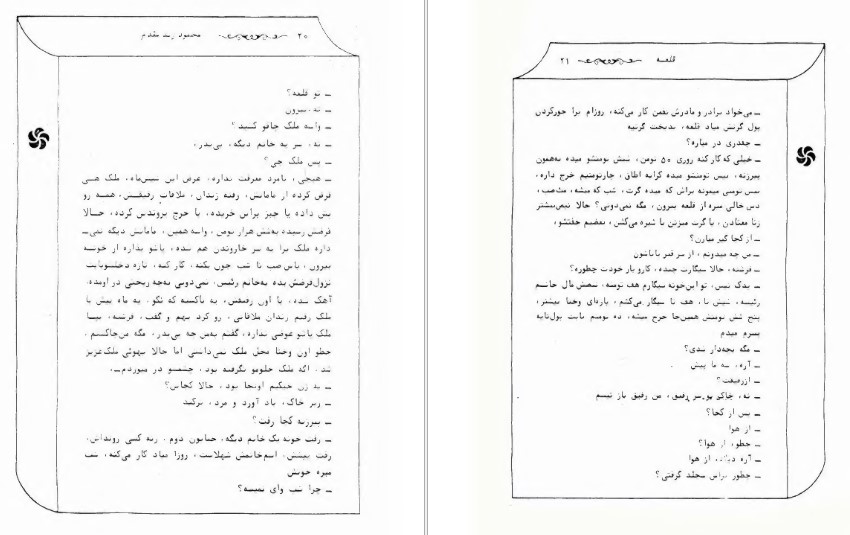 ۲۰ محمود زند مقدم
ــ تو قلعه؟
ــ نه، بیرون
ــ واسه ملک چاقو کشید؟
ــ نه، سر یه خانم دیگه، بی‌پدر،
ــ پس ملک چی؟
ــ هیچی، نامرد معرفت نداره، عرض این شیش‌ماه، ملک هی
قرض کرده از مامانش، رفته زندان، ملاقات رفیقش، همه رو
پس داده یا چیز براش خریده، یا خرج پرونده‌ش کرده، حالا
قرضش رسیده به‌شش هزار تومن، واسه همین، مامانش دیگه نمی‌ــ
ذاره ملک برا یه سر خاروندن هم شده، پاشو بذاره از خونه
بیرون، باس صب تا شب جون بکنه، کار کنه، تازه دخلشو بابت
نزول قرضش بده به‌خانم رئیس، نمی‌دونی به‌چه ریختی در اومده،
آهک شده، با اون رفیقش، به ناکسیه که نگو، یه ماه پیش با
ملک رفتم زندان ملاقاتی، رو کرد بهم و گفت، فرشته، بپا
ملک پاشو عوضی نذاره، گفتم به‌من چه بی‌پدر، مگه من‌جاکشم،
چطو اون وختا محل ملک نمی‌ذاشتی اما حالا یهوئی ملک‌عزیز
شد، اگه ملک جلومو نگرفته بود، چشمشو در میوردم ــ.
ــ یه زن چیگیم اونجا بود، حالا کجاس؟
ــ زیر خاک، باد آورد و مرد، ترکید
ــ پیرزنه کجا رفت؟
ــ رفت خونه یک خانم دیگه، خیابون دوم، زنه کسی رو نداش،
رفت پیشش، اسم‌خانمش شهلاست، روزا میاد کار می‌کنه، شب
میره خونش
ــ چرا شب وای نمیسه؟
قلعه ۲۱
ــ می‌خواد برادر و مادرش نفمن کار می‌کنه، روزام برا جورکردن
پول گرتش میاد قلعه، بدبخت گرتیه
ــ چقدری در میاره؟
ــ خیلی که کار کنه روزی ۵۰ تومن، شیش تومنشو میده به‌همون
پیرزنه، بیس تومنشو میده کرایه اطاق، چارتومنیم خرج داره،
بیس تومنی میمونه براش که میده گرت، شب که میشه،
دس خالی میره از قلعه بیرون، مگه نمی‌دونی؟ حالا نیم‌بیشتر
زنا معتادن، یا گرت میزنن یا شیره می‌کشن،
ــ از کجا گیر میارن؟
ــ من چه میدونم، از سر قبر باباشون
ــ فرشته، حالا سیگارت چنده، کارو بار خودت چطوره؟
ــ یدک نیس، تو این‌خونه سیگارم هف تومنه، نصفش مال خانیم
رئیسه، شیش تا، هف تا سیگار می‌کشم، پاره‌ای وختا بیشتر،
پنج شش تومنش همین‌جا خرج میشه، ده تومنم بابت پول‌دایه
پسرم میدم
ــ مگه بچه‌دار شدی؟
ــ آره، سه ما پیش
ــ از رفیقت؟
ــ نه، خاکو تو سر رفیق، من رفیق باز نیسم
ــ پس از کجا؟
ــ از هوا
ــ چطو، از هوا؟
ــ آره دیگه، از هوا
ــ چطور براش سجلد گرفتی؟